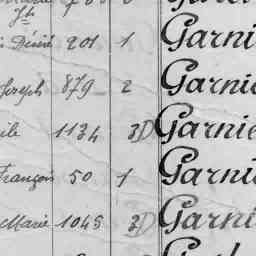 Jh
Désiré 201 1 Garni
Joseph 879 2 Garnie
ile 1134 3D Garnie
François 50 1 Garni
Marie 1045 3D Garni